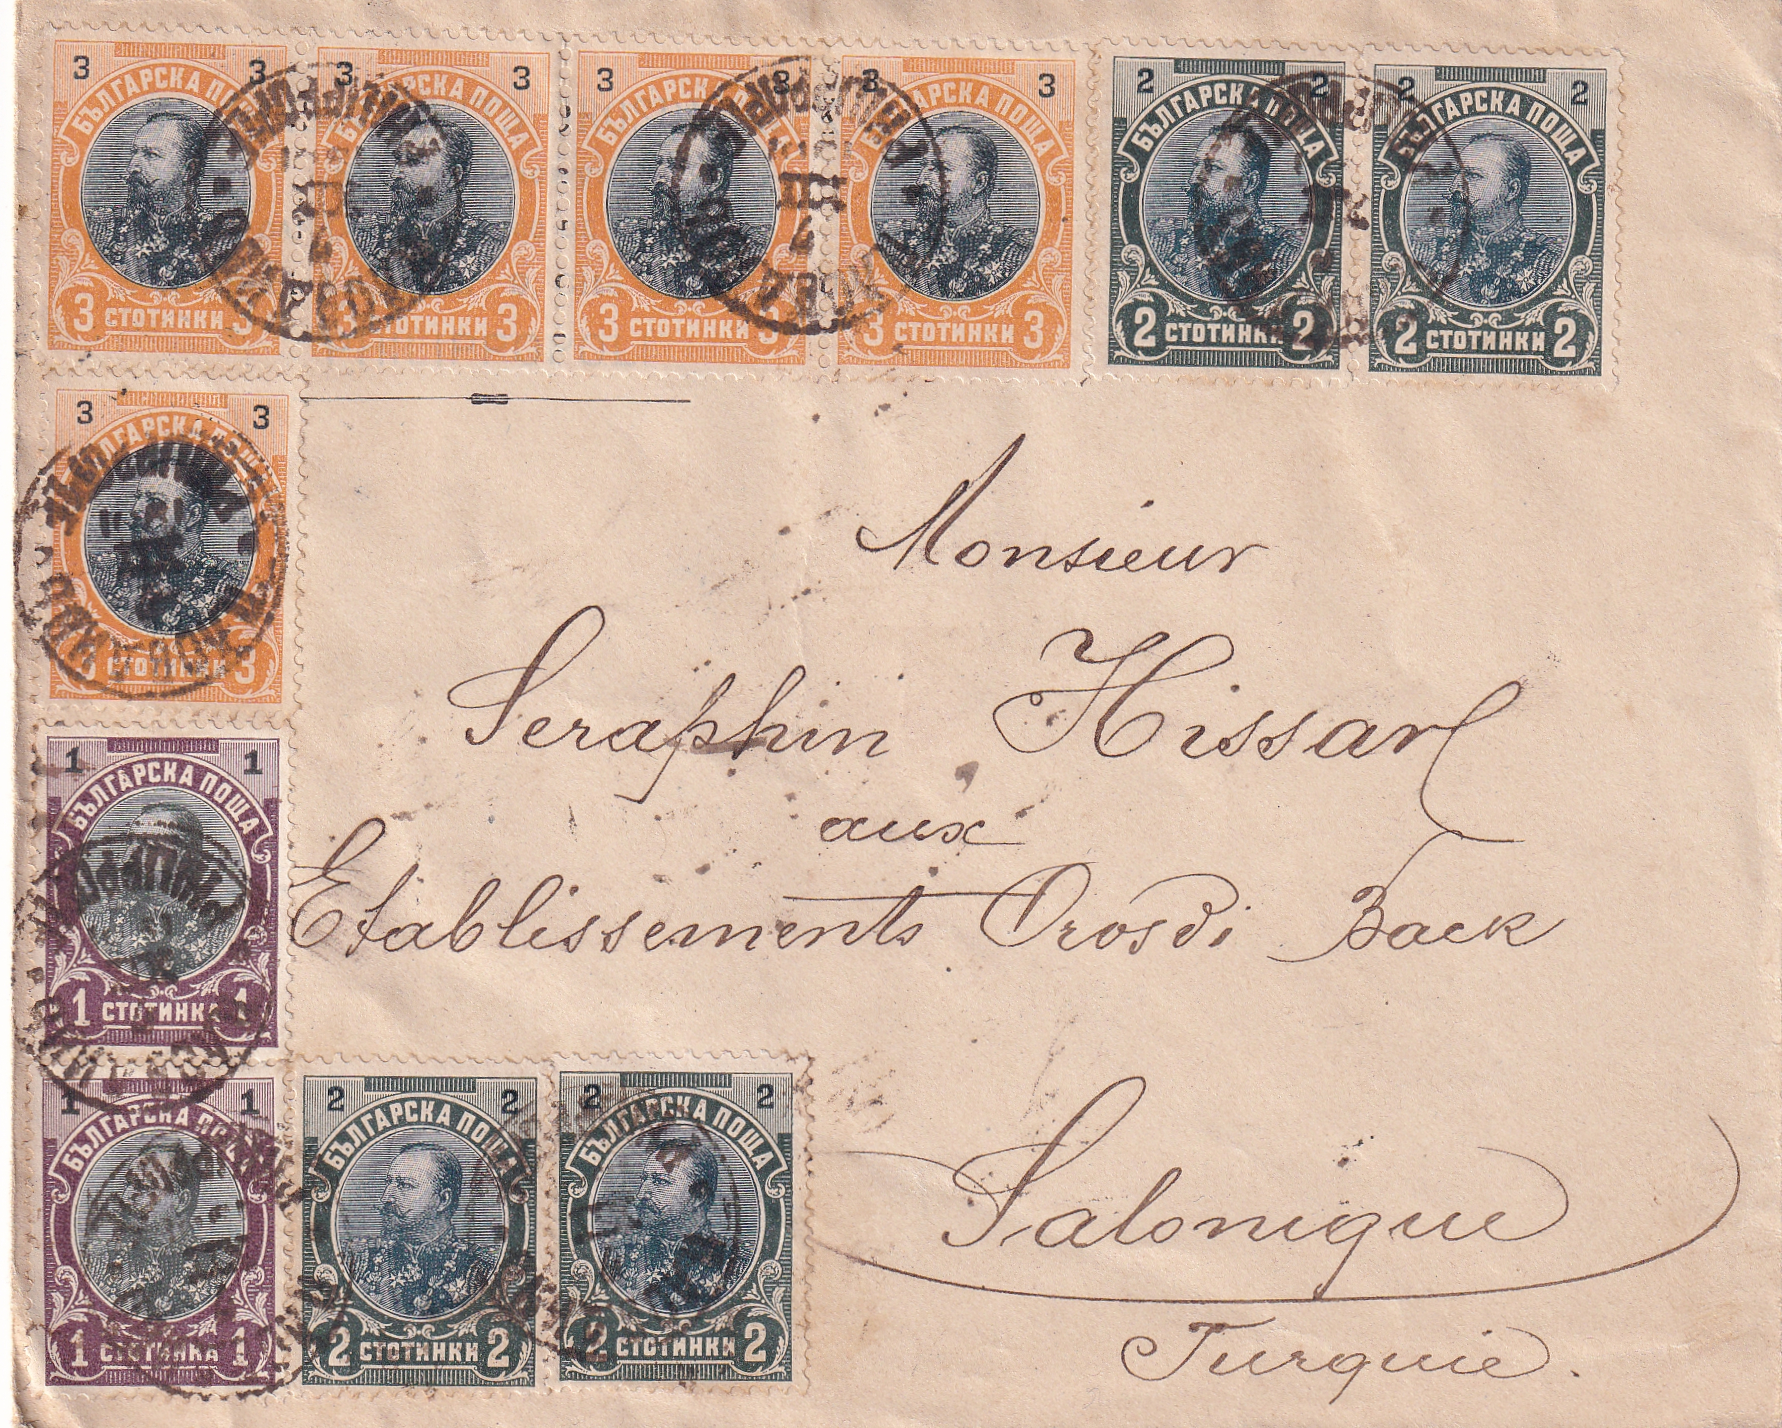 3 3 3 3 3 3 3 3 2 2 2 2
БЪЛГАРСКА ПОЩА БЪЛГАРСКА ПОЩА БЪЛГАРСКА ПОЩА БЪЛГАРСКА ПОЩА БЪЛГАРСКА ПОЩА БЪЛГАРСКА ПОЩА
3 СТОТИНКИ 3 3 СТОТИНКИ 3 3 СТОТИНКИ 3 3 СТОТИНКИ 3 2 СТОТИНКИ 2 2 СТОТИНКИ 2
3 3
БЪЛГАРСКА ПОЩА
3 СТОТИНКИ 3
Monsieur
Seraphin Hissarl
aux
Etablissements Orosdi Back
Salonique
Turquie.
1 1
БЪЛГАРСКА ПОЩА
1 СТОТИНКА 1
1 1 2 2 2 2
БЪЛГАРСКА ПОЩА БЪЛГАРСКА ПОЩА БЪЛГАРСКА ПОЩА
1 СТОТИНКА 1 2 СТОТИНКИ 2 2 СТОТИНКИ 2